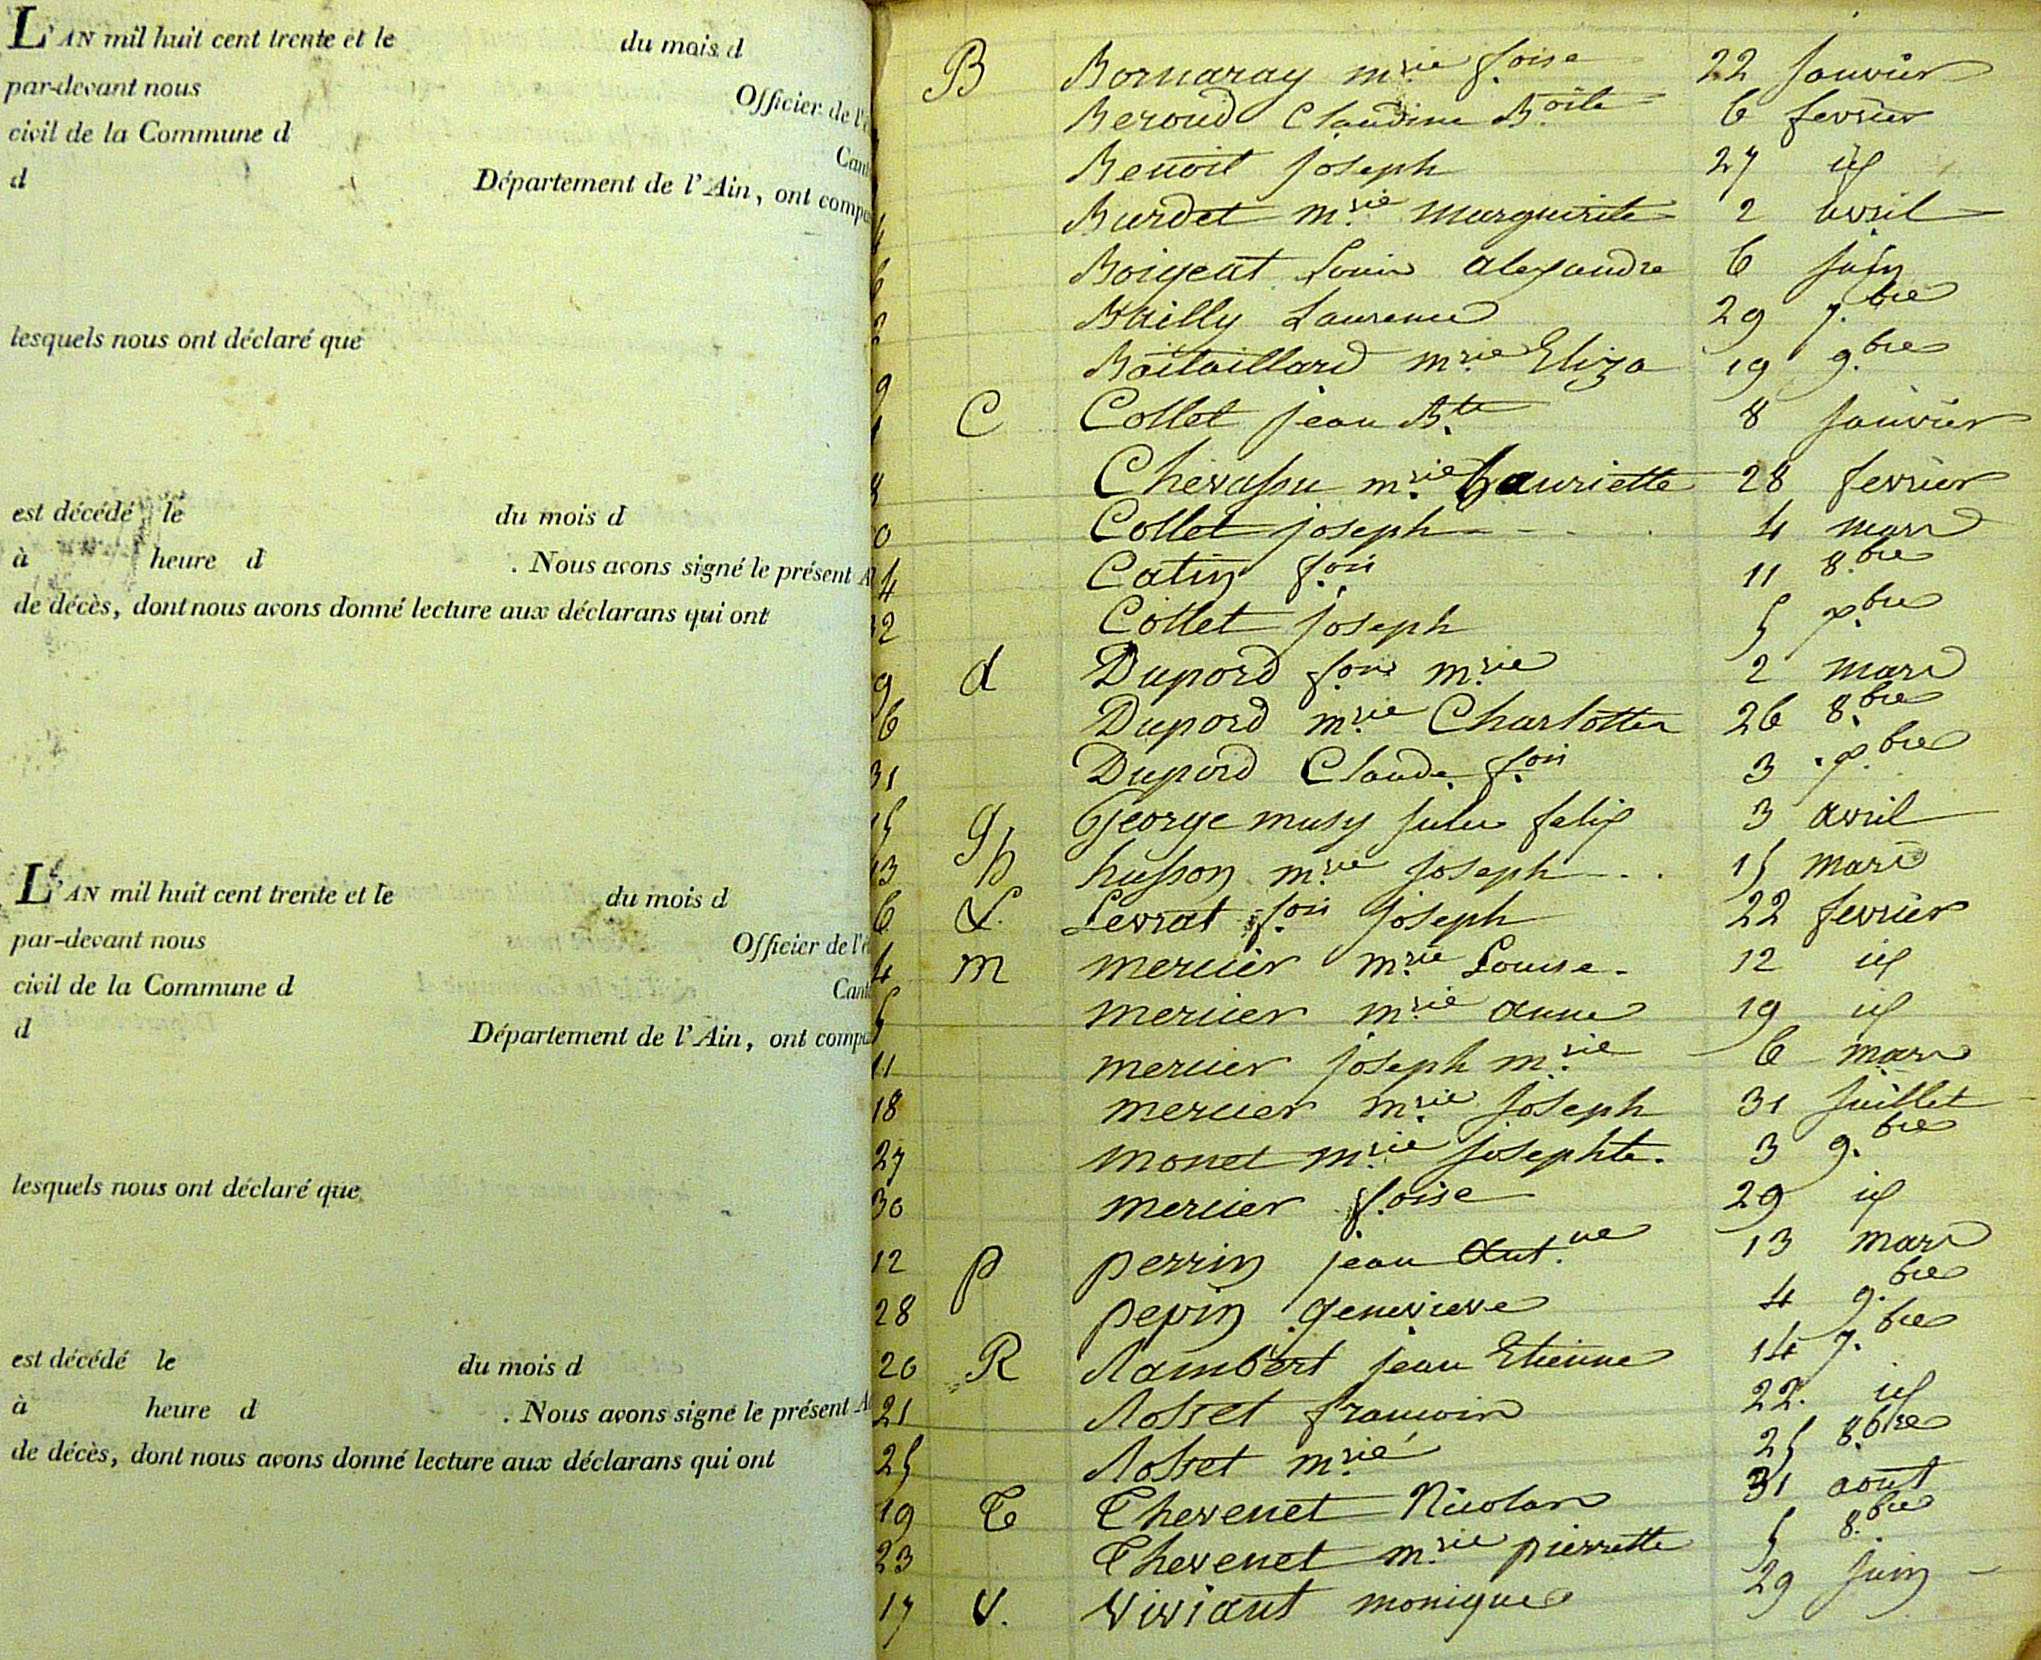 L'AN mil huit cent trente et le du mois d
par-devant nous Officier de l'é
civil de la Commune d Cant
d Département de l'Ain, ont compa
lesquels nous ont déclaré que
est décédé le du mois d
à heure d . Nous avons signé le présent A
de décès, dont nous avons donné lecture aux déclarans qui ont
L'AN mil huit cent trente et le du mois d
par-devant nous Officier de l'é
civil de la Commune d Cant
d Département de l'Ain, ont compa
lesquels nous ont déclaré que
est décédé le du mois d
à heure d . Nous avons signé le présent A
de décès, dont nous avons donné lecture aux déclarans qui ont
B Bornaray m.rie f.oise 22 janvier
Beroud Claudine B.oite 6 fevrier
Benoit joseph 27 id
4 Burdet m.rie marguerite 2 avril
6 Boigeat Louis alexandre 6 juin
2 Bailly Laurence 29 7.bre
9 Bataillard m.rie Eliza 19 9.bre
1 C Collet jean B.te 8 janvier
8 Chevassu m.rie hauriette 28 fevrier
0 Collet joseph 4 mars
4 Catin f.ois 11 8.bre
32 Collet joseph 5 x.bre
9 d Dupord f.ois m.rie 2 mars
26 Dupord m.rie Charlotte 26 8.bre
31 Dupord Claude f.ois 3 x.bre
15 g George musy jules felix 3 avril
13 h husson m.rie joseph 15 mars
6 L. Levrat f.ois joseph 22 fevrier
4 m mercier m.rie Louise 12 id
5 mercier m.rie anne 19 id
11 mercier joseph m.rie 6 mars
18 mercier m.rie joseph 31 juillet
27 monet m.rie josephte. 3 9.bre
30 mercier f.oise 29 id
12 p perrin jean ant.ne 13 mars
28 pepin genevieve 4 9.bre
20 R Rambert jean Etienne 14 7.bre
21 Rosset francois 22. id
25 Rosset m.rie 25 8.bre
19 T Thevenet Nicolas 31 aout
23 Thevenet m.rie pierrette 5 8.bre
17 V. Viviant monique 29 juin